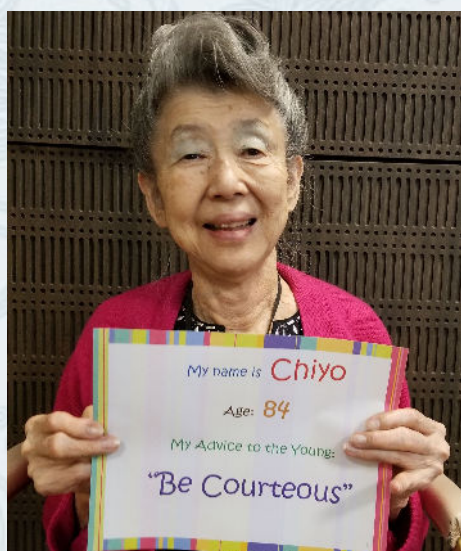 My name is Chiyo
Age: 84
My Advice to the Young:
"Be Courteous"